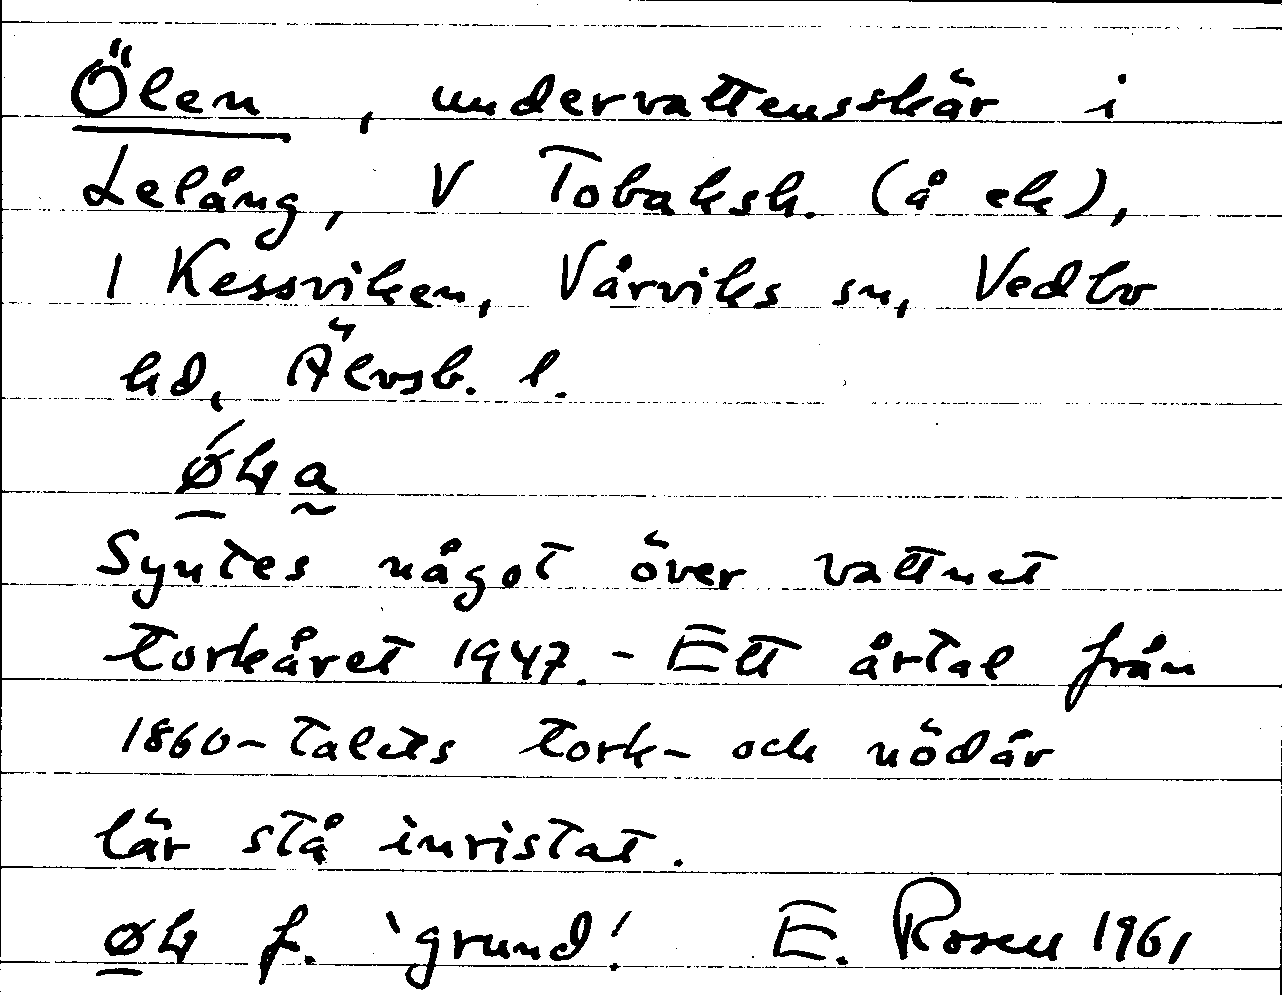 Ölen, undervattensskär i
Lelång, V Tobaksh. (å ek),
i Kessviken, Vårviks sn, Vedbo
hd, Älvsb. l.
Syntes något över vattnet
torkåret 1947. - Ett årtal från
1860-talets tork- och nödår
lär stå inristat.
f. 'grund'. E. Rosen 1961